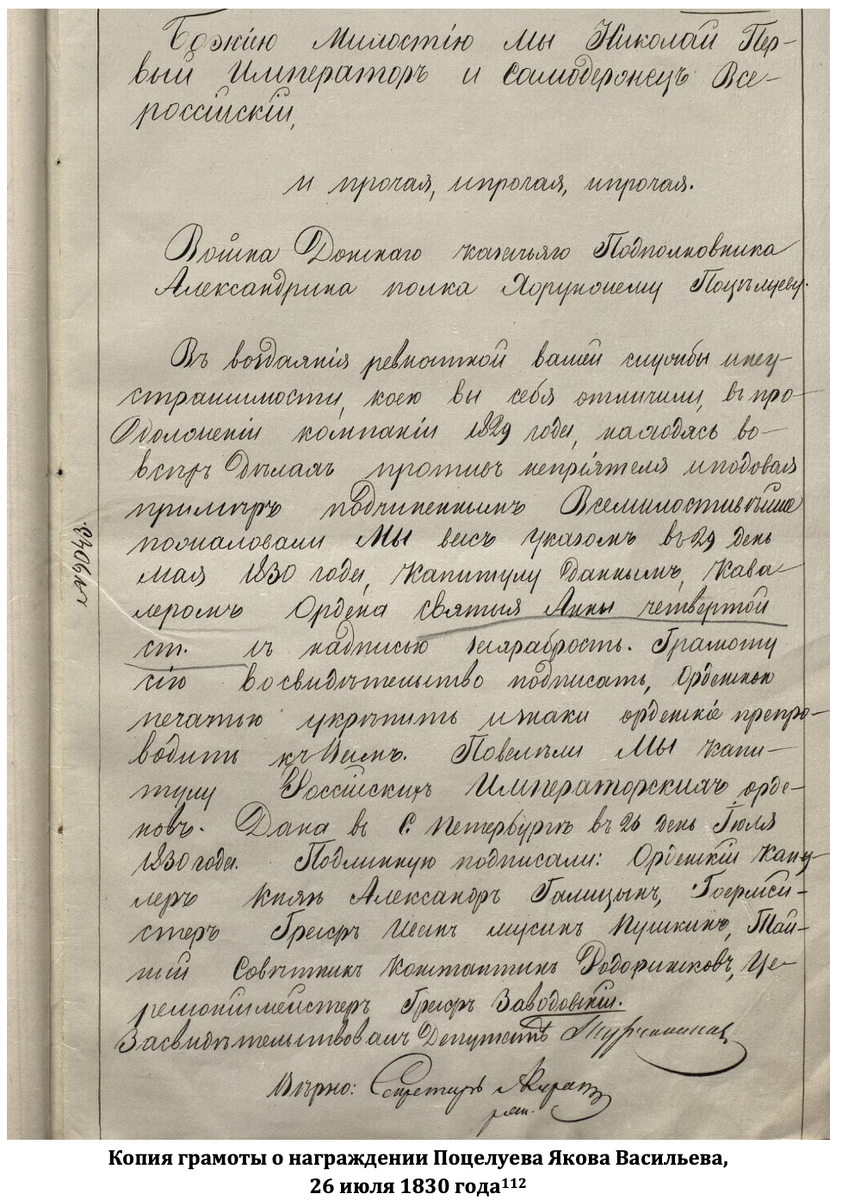 Божіею Милостію Мы Николай Пер-
вый Императоръ и Самодержецъ Все-
россійскій,
и прочая, ипрочая, ипрочая.
Войска Донскаго казачьяго Подполковника
Александрина полка Хорунжему Поцѣлуеву.
Въ воздаяніе ревностной вашей службы инеу-
страшимости, коею вы себя отличили, въ про-
должженіи компаніи 1829 года, находясь во
всѣхъ Дѣлахъ противъ непріятеля иподавая
примѣръ подчиненнымъ Всемилостивѣйше
пожаловали Мы васъ указомъ въ 29 день
мая 1830 года, Капитулу Даннымъ, Кава-
леромъ Ордена святыя Анны четвертой
ст. съ надписью захрабрость. Грамоту
сію восвидѣтельство подписать, Орденскою
печатью укрѣпить изнаки орденскіе препро-
водить къ Вамъ. Повелѣли Мы Капи-
тулу Россійскихъ Императорскихъ орде-
новъ. Дана въ С. Петербургѣ въ 26 день Іюля
1830 года. Подлинную подписали: Орденскій Канц-
леръ Князь Александръ Галицынъ, Гоермей-
стеръ Графъ Иванъ Мусинъ Пушкинъ, Тай-
ный Совѣтникъ Константинъ Родофиниковъ, Це-
ремоніймейстеръ Графъ Заводовскій.
Засвидѣтельствовалъ Депутатъ
Вѣрно: Секретарь
Копия грамоты о награждении Поцелуева Якова Васильева,
26 июля 1830 года112